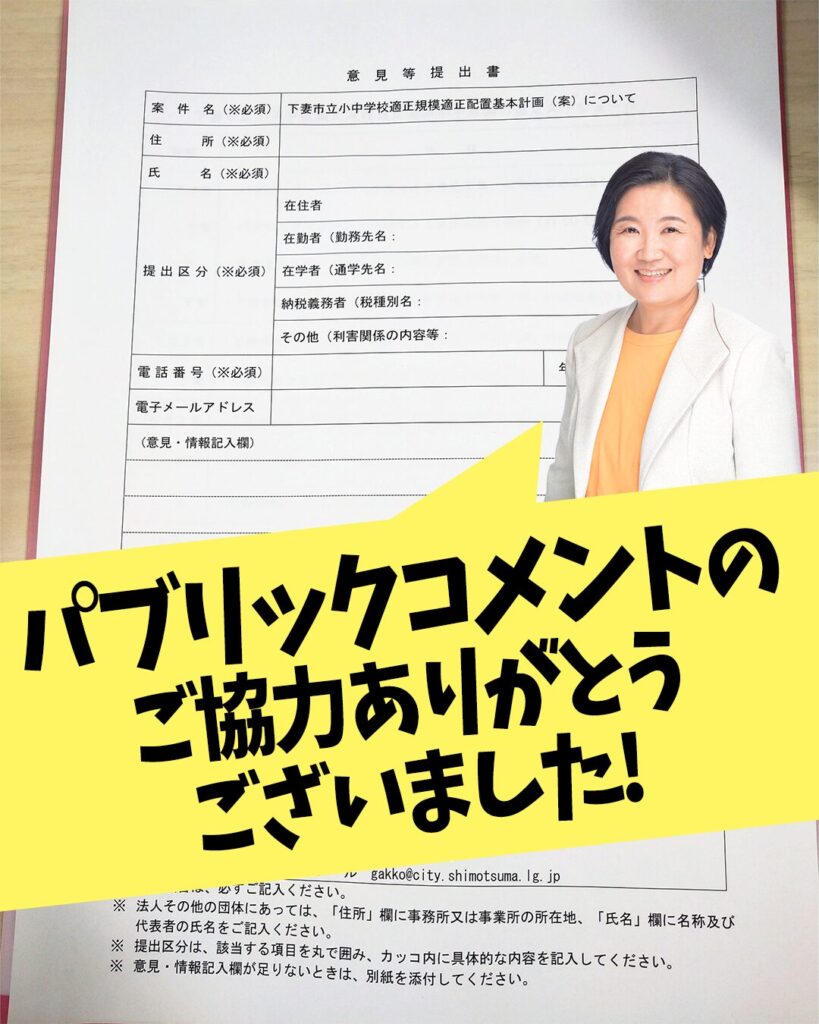 意見等提出書
案件名（※必須） 下妻市立小中学校適正規模適正配置基本計画（案）について
住所（※必須）
氏名（※必須）
提出区分（※必須）
在住者
在勤者（勤務先名：
在学者（通学先名：
納税義務者（税種別名：
その他（利害関係の内容等：
電話番号（※必須）
電子メールアドレス
（意見・情報記入欄）
パブリックコメントの
ご協力ありがとう
ございました!
gakko@city.shimotsuma.lg.jp
は、必ずご記入ください。
※ 法人その他の団体にあっては、「住所」欄に事務所又は事業所の所在地、「氏名」欄に名称及び
代表者の氏名をご記入ください。
※ 提出区分は、該当する項目を丸で囲み、カッコ内に具体的な内容を記入してください。
※ 意見・情報記入欄が足りないときは、別紙を添付してください。